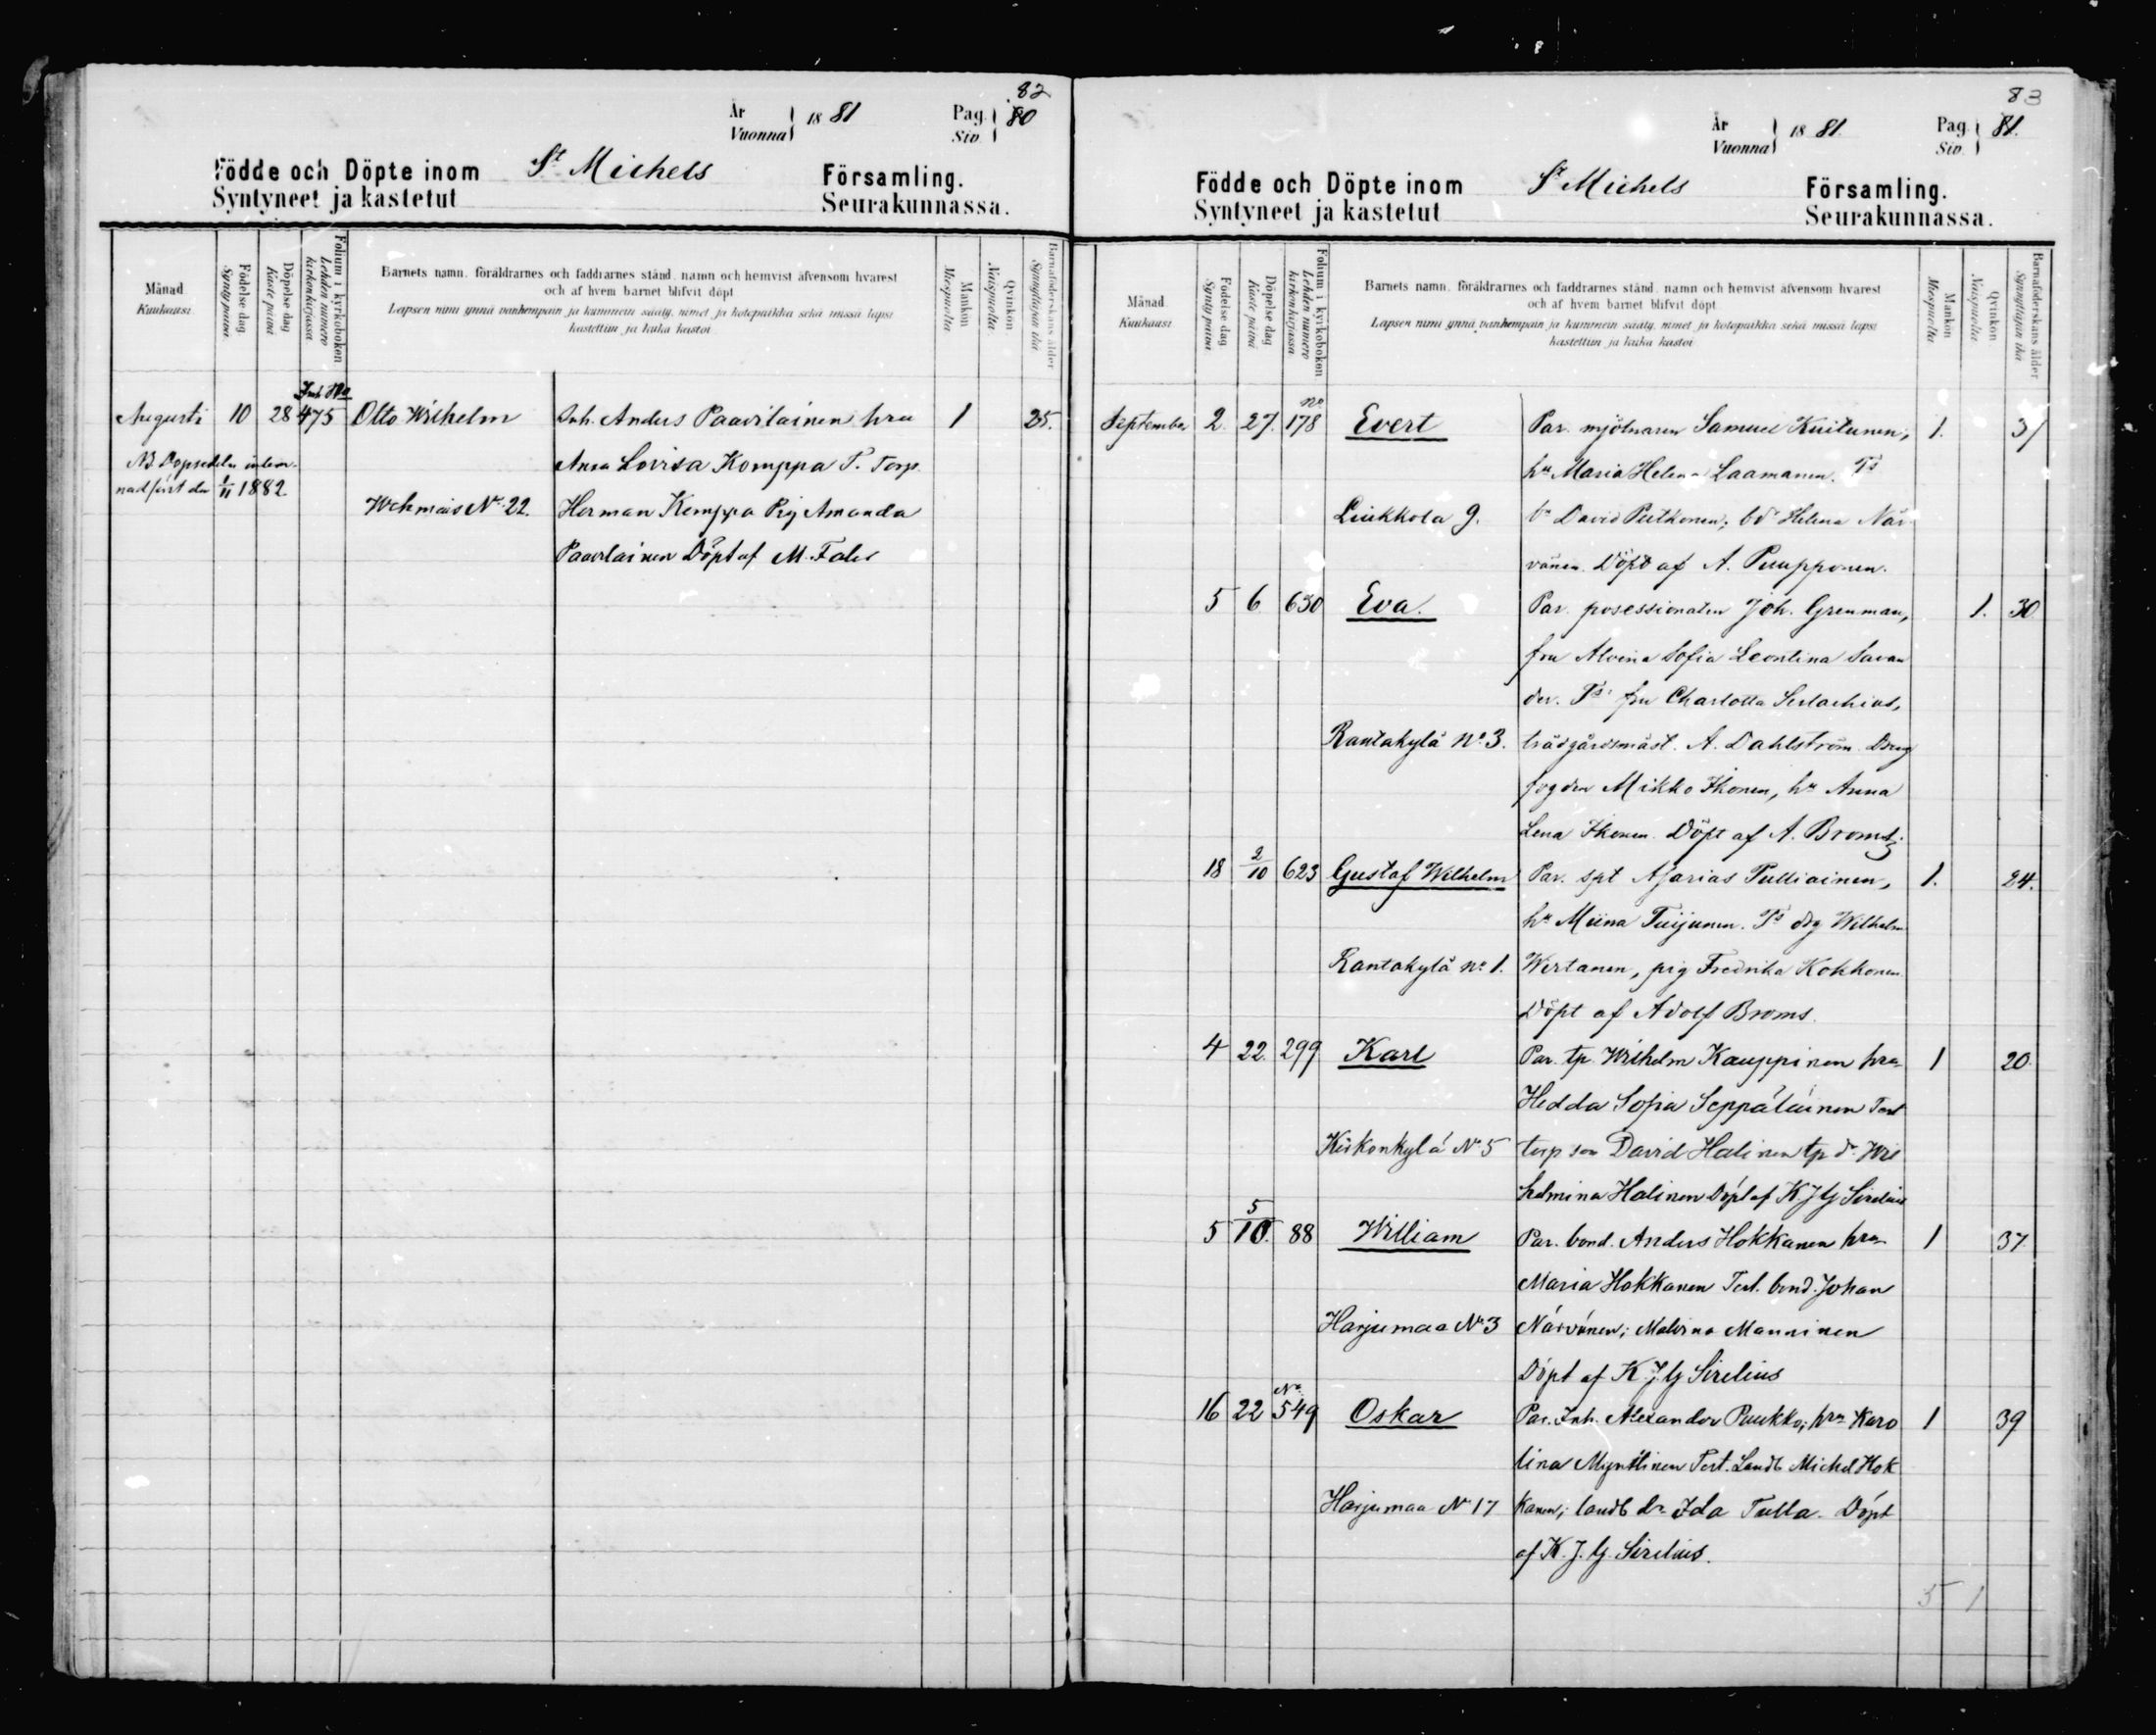 82
År 1881 Pag. 80
Vuonna Siv.
Födde och Döpte inom St Michels Församling.
Syntyneet ja kastetut Seurakunnassa.
Månad
Kuukausi
Födelse dag.
Synty päivä
Döpelse dag
Kaste päivä
Folium i kyrkoboken
Lehden numero kirkonkirjassa
Barnets namn, föräldrarnes och faddrarnes stånd, namn och hemvist äfvensom hvarest
och af hvem barnet blifvit döpt
Lapsen nimi ynnä vanhempain ja kummein sääty, nimet ja kotopaikka sekä missä lapsi
kastettiin ja kuka kastoi
Mankön
Miespuolta
Qvinkön
Naispuolta
Barnaföderskans ålder
Synnyttäjän ikä
Inh. No
Augusti 10 28 475 Otto Wilhelm Inh. Anders Paavilainen hru 1 25.
NB Dopsedeln inlem- Anna Lovisa Komppa T. Torp.
nad först den 1/11 1882.
Wehmais No 22. Herman Komppa Pig Amanda
Paavilainen Döpt af M. Faler
83
År 1881. Pag. 81.
Vuonna Siv.
Födde och Döpte inom St Michels Församling.
Syntyneet ja kastetut Seurakunnassa.
Månad
Kuukausi
Födelse dag
Synty päivä
Döpelse dag
Kaste päivä
Folium i kyrkoboken
Lehden numero kirkonkirjassa
Barnets namn, föräldrarnes och faddrarnes stånd, namn och hemvist äfvensom hvarest
och af hvem barnet blifvit döpt
Lapsen nimi ynnä vanhempain ja kummein sääty, nimet ja kotopaikka sekä missä lapsi
kastettiin ja kuka kastoi
Mankön
Miespuolta
Qvinkön
Naispuolta
Barnaföderskans ålder
Synnyttäjän ikä
September 2. 27. no 178 Evert Par. mjölnaren Samuel Kuitunen, 1. 31
hu Maria Helena Laamanen. Ts
Liukkola 9. bn David Pulkonen, bdr Helena När-
vänen. Döpt af A. Puupponen.
5 6 630 Eva. Par. posessionaten Joh. Grenman, 1. 30
fru Alvina Sofia Leontina Savan
der. Ts fru Charlotta Serlachius,
Rantakylä No 3. trädgårdsmäst. A. Dahlström. Dreng
fogden Mikko Ikonen, hu Anna
Lena Ikonen. Döpt af A. Broms.
18 2/10 623 Gustaf Wilhelm Par. spt Asarias Pulliainen, 1. 24.
hu Miina Tuijunen. Ts drg Wilhelm
Rantakylä no 1. Wirtanen, pig Fredrika Kokkonen.
Döpt af Adolf Broms.
4 22. 299 Karl Par. tp. Wilhelm Kauppinen hru 1 20
Hedda Sofia Seppäläinen Test
Kirkonkylä No 5 torp son David Halinen tp dr Wil
helmina Halinen Döpt af K J G Sirelius
5 5/10. 88 William Par. bond. Anders Hokkanen hru 1 37.
Maria Hokkanen Test. bond. Johan
Harjumaa No 3 Närvänen; Malvina Manninen
Döpt af K J G Sirelius
16 22 No 549 Oskar Par. Inh. Alexander Puukko, hru Karo 1 39
lina Mynttinen Test. Landb Michel Hok
Harjumaa No 17 kanen; landb dr Ida Tulla. Döpt
af K. J. G. Sirelius.
5 1